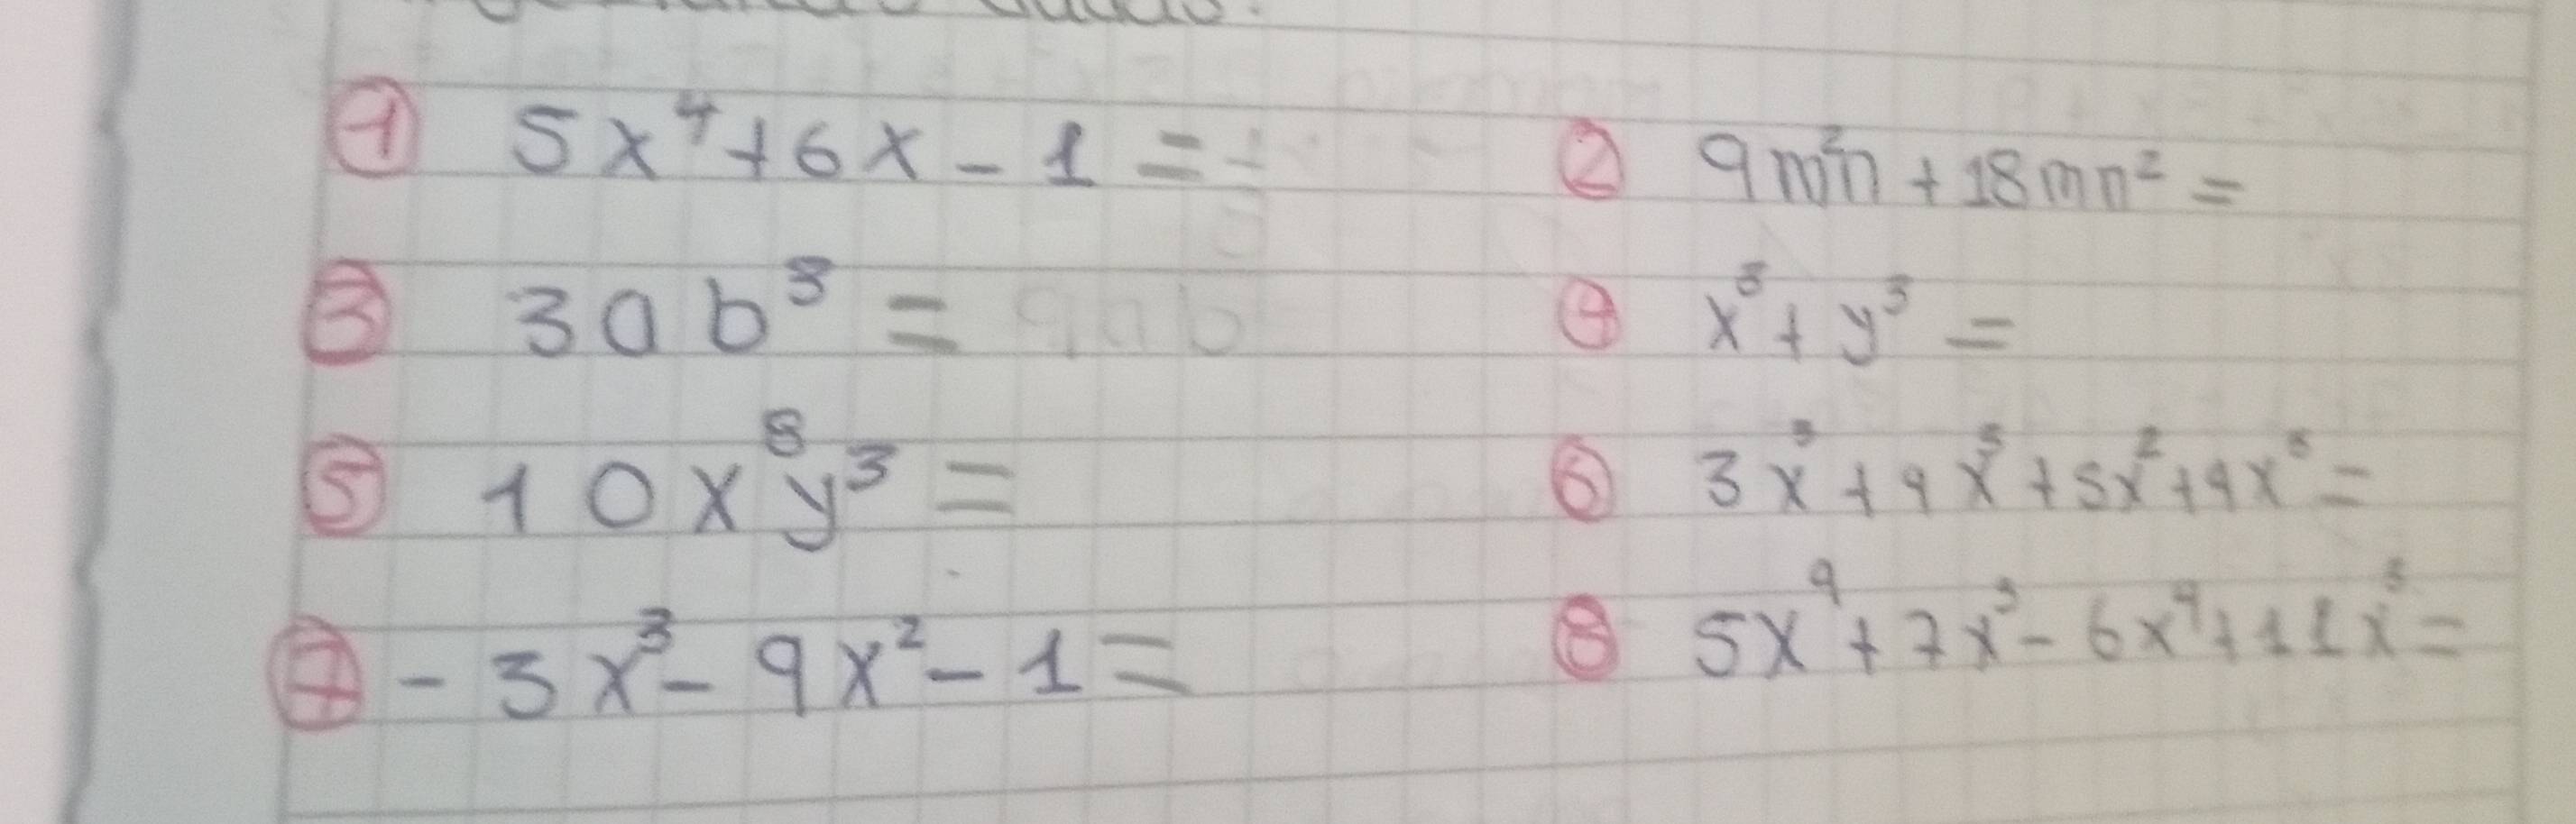 dados.
① 5x⁴+6x-1= ② 9m²n+18mn²=
③ 3ab³= ④ x³+y³=
⑤ 10x⁸y³= ⑥ 3x³+9x³+5x²+9x³=
⑦ -3x³-9x²-1= ⑧ 5x⁹+7x³-6x⁹+11x³=